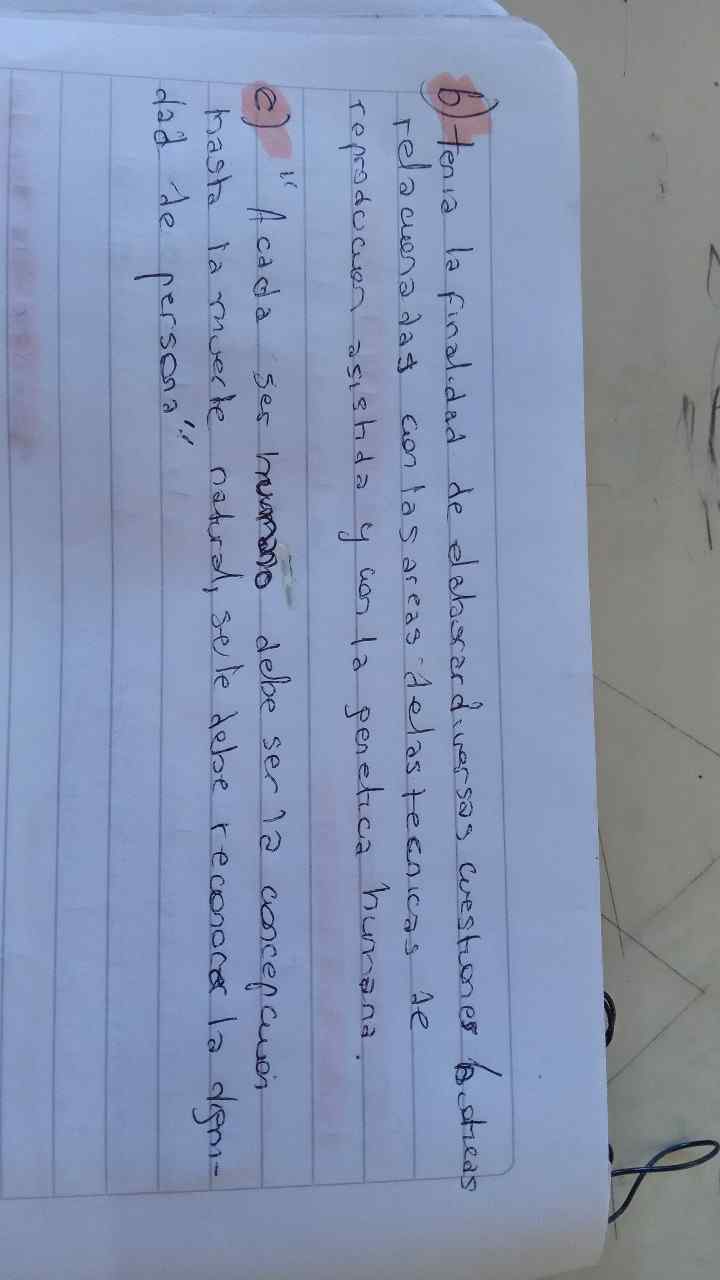 b) tenia la finalidad de elaborar diversas cuestiones bioéticas
relacionadas con las areas de las tecnicas de
reproduccion asistida y con la genetica humana.
c) "A cada ser humano debe ser la concepcion
hasta la muerte natural, se le debe reconocer la digni-
dad de persona"